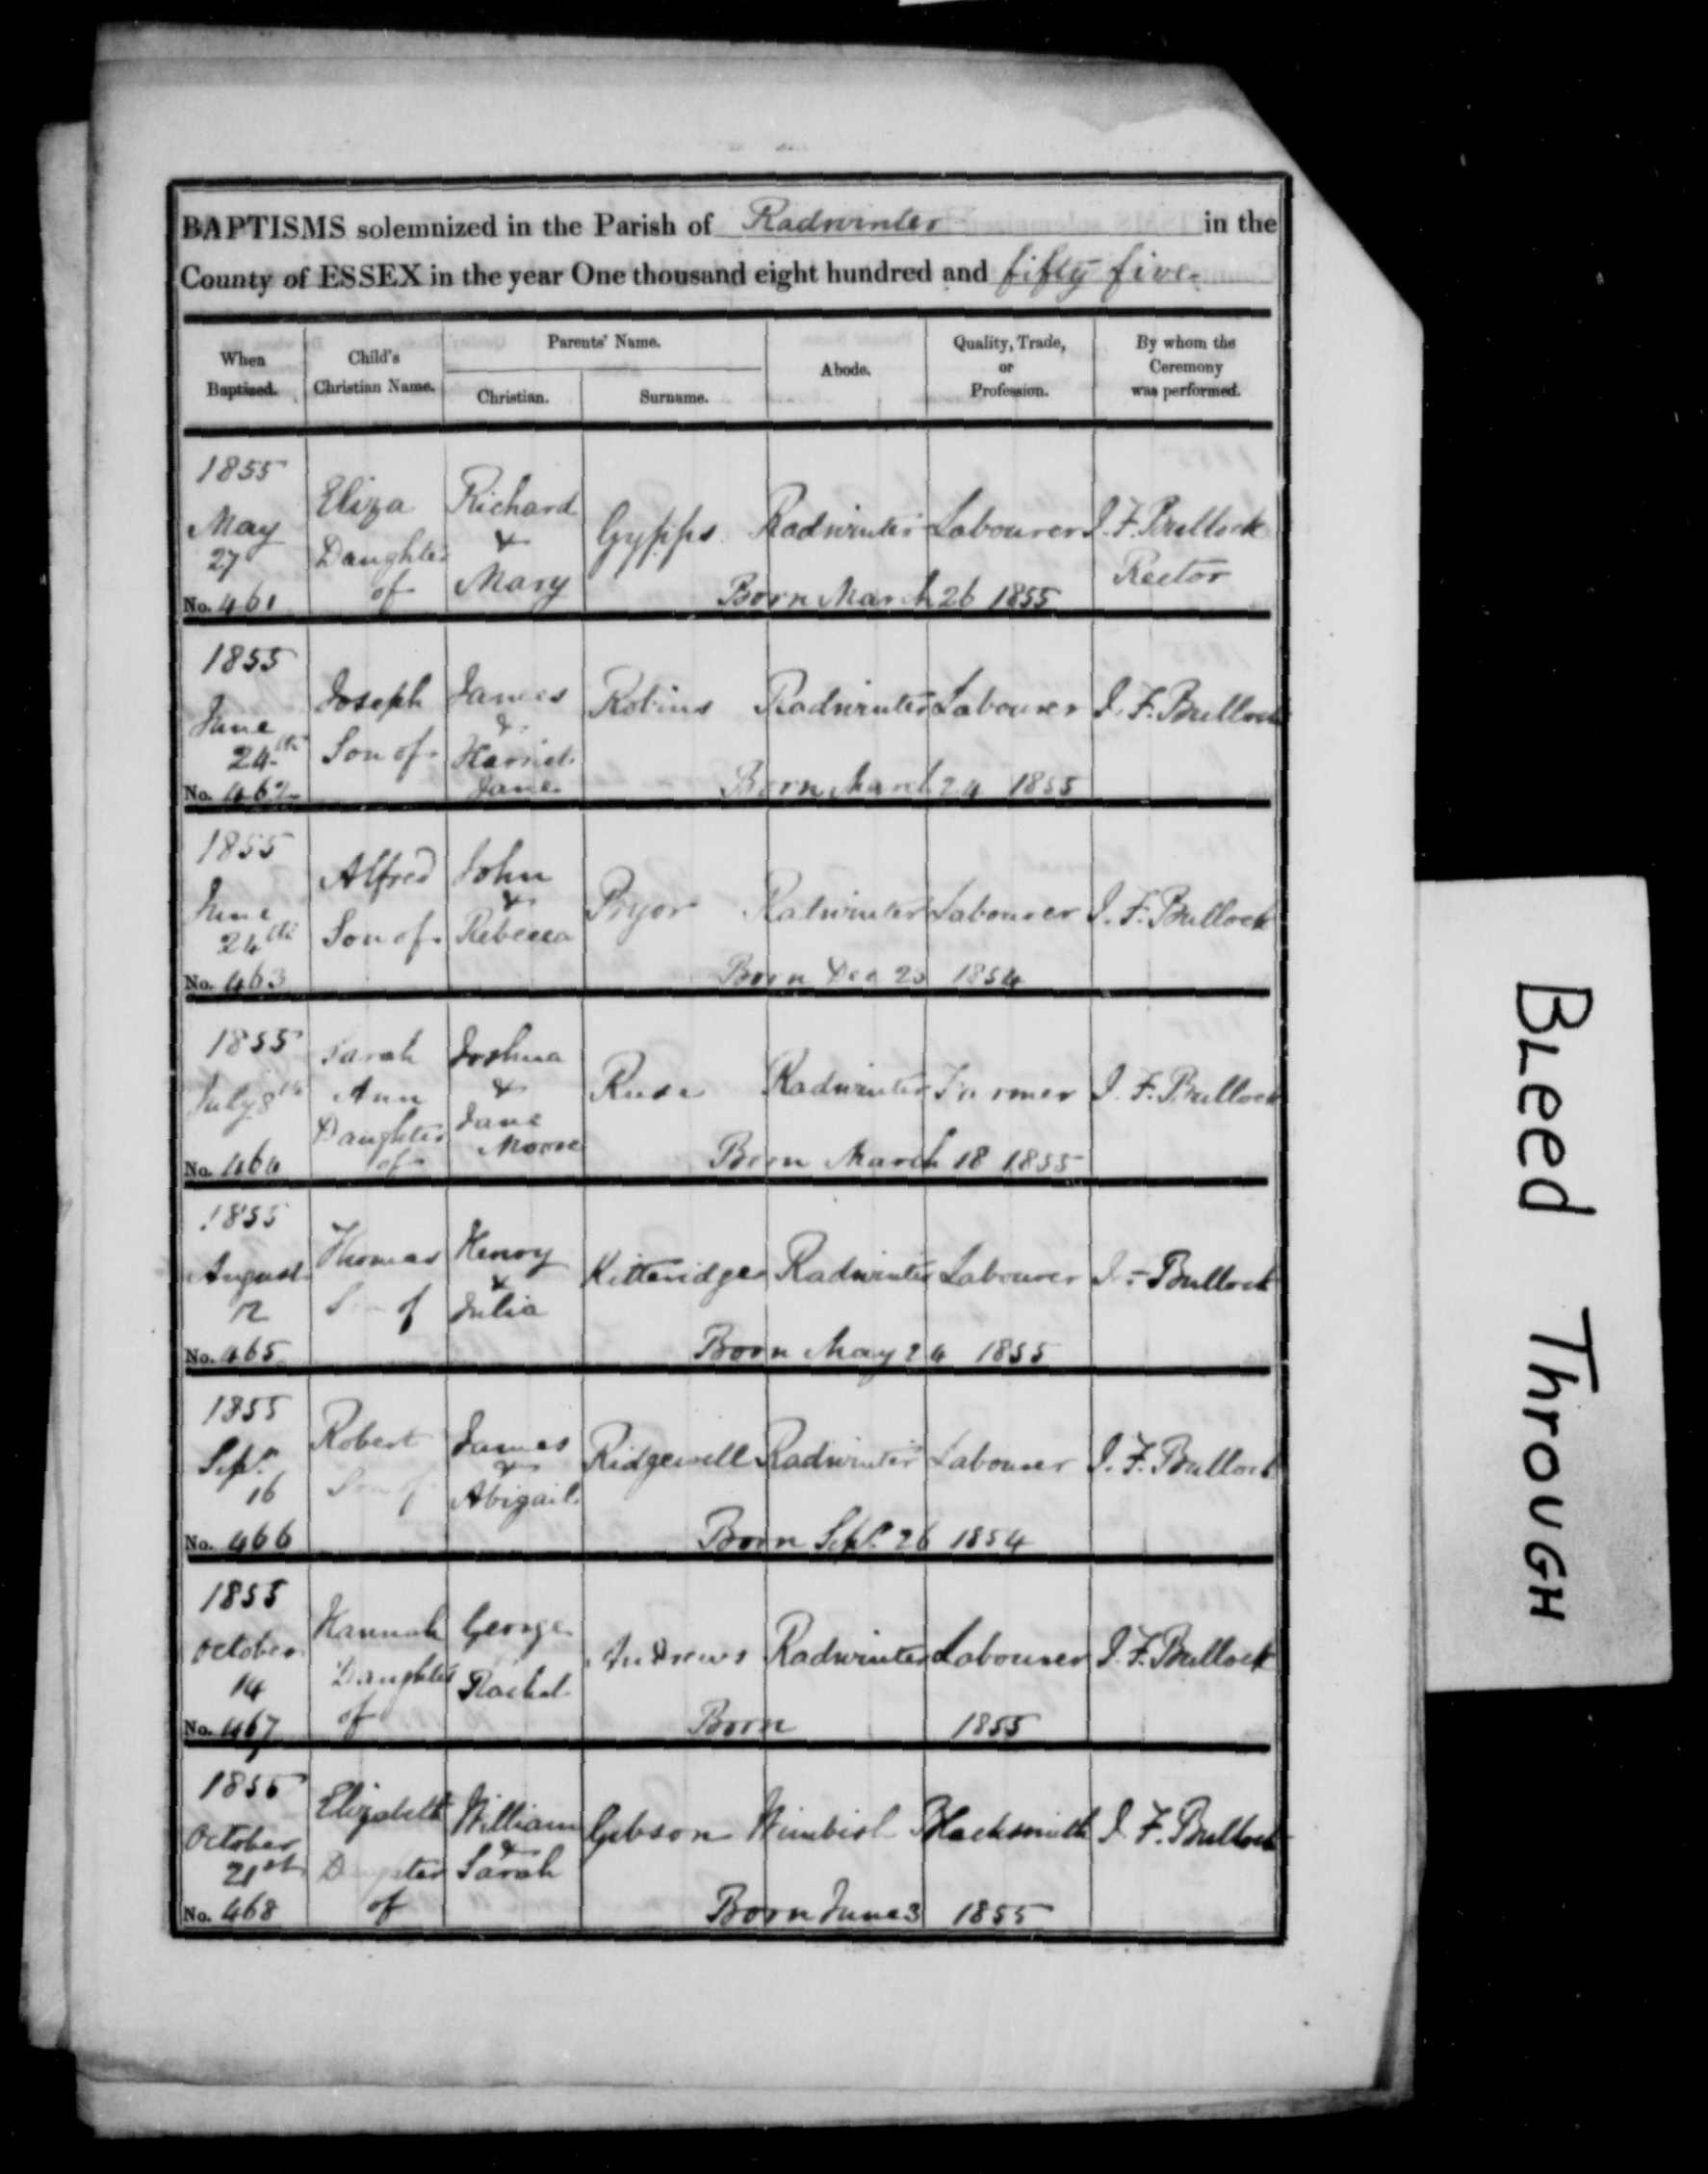 BAPTISMS solemnized in the Parish of Radwinter in the
County of ESSEX in the year One thousand eight hundred and fifty five
When Baptized.
Child's Christian Name.
Parents' Name.
Christian.
Surname.
Abode.
Quality, Trade, or Profession.
By whom the Ceremony was performed.
1855 May 27 No. 461
Eliza Daughter of
Richard & Mary
Gypps Radwinter Labourer J. F. Bullock Rector
Born March 26 1855
1855 June 24th No. 462
Joseph Son of
James & Harriet Jane
Robins Radwinter Labourer J. F. Bullock
Born March 24 1855
1855 June 24th No. 463
Alfred Son of
John & Rebecca
Pryor Radwinter Labourer J. F. Bullock
Born Dec 1854
1855 July 8th No. 464
Sarah Ann Daughter of
Joshua & Jane Moore
Ruse Radwinter Farmer J. F. Bullock
Born March 18 1855
1855 August 12 No. 465
Thomas Son of
Henry & Julia
Kitteridge Radwinter Labourer J. F. Bullock
Born May 24 1855
1855 Sept. 16 No. 466
Robert Son of
James & Abigail
Ridgewell Radwinter Labourer J. F. Bullock
Born Sept. 26 1854
1855 October 14 No. 467
Hannah Daughter of
George Rachel
Andrews Radwinter Labourer J. F. Bullock
Born 1855
1855 October 21st No. 468
Elizabeth Daughter of
William & Sarah
Gibson Wimbish Blacksmith J. F. Bullock
Born June 3 1855
BLeed ThrouGH